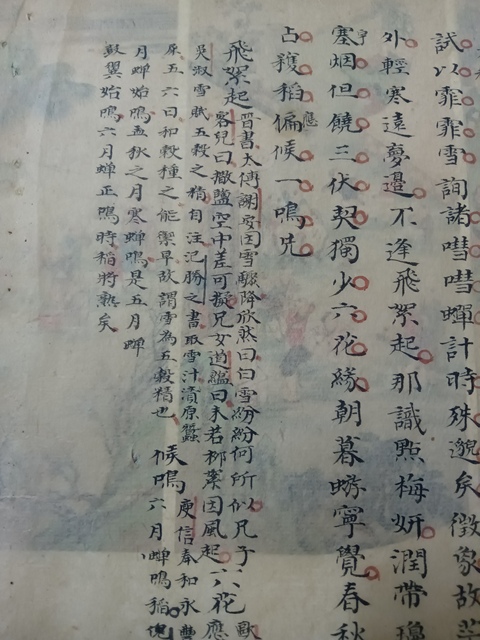 試以霏霏雪詢諸嘒嘒蟬計時殊邈矣徴象故
外輕寒遠夢邊不逢飛絮起那識點梅妍潤帶
塞烟但饒三伏契獨少六花緣朝暮蜉寧覺春秋
占穫稻偏應候一鳴先
飛絮起
晋書太傅謝安因雪驟降欣然曰白雪紛紛何所似兄子
客兒曰撒鹽空中差可擬兄女道韞曰未若柳絮因風起
六花
吳淑雪賦五穀之精自注氾勝之書取雪汁漬原蠶
原五六日和穀種之能禦旱故謂雪為五穀精也
候鳴
庾信奉和永豐
六月蟬鳴稻
月蟬始鳴孟秋之月寒蟬鳴是五月蟬
鼓翼始鳴六月蟬正鳴時稻將熟矣